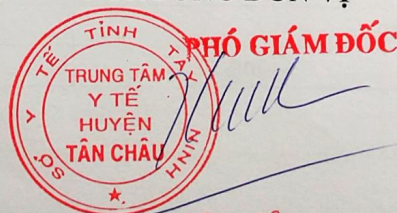 PHÓ GIÁM ĐỐC
SỞ Y TẾ TỈNH TÂY NINH
TRUNG TÂM
Y TẾ
HUYỆN
TÂN CHÂU